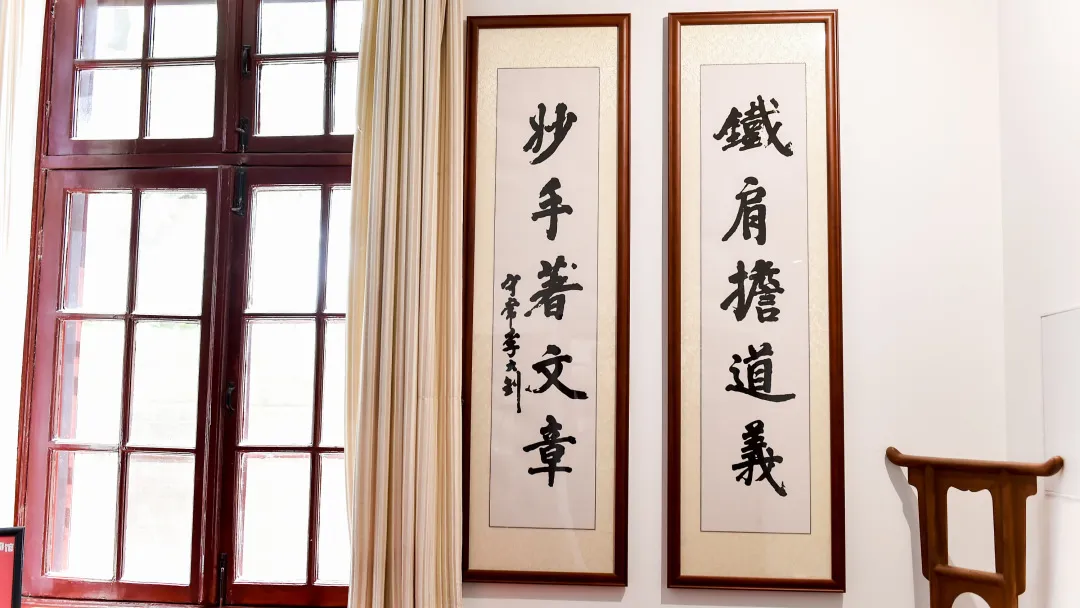 鐵肩擔道義
妙手著文章
守常李大釗